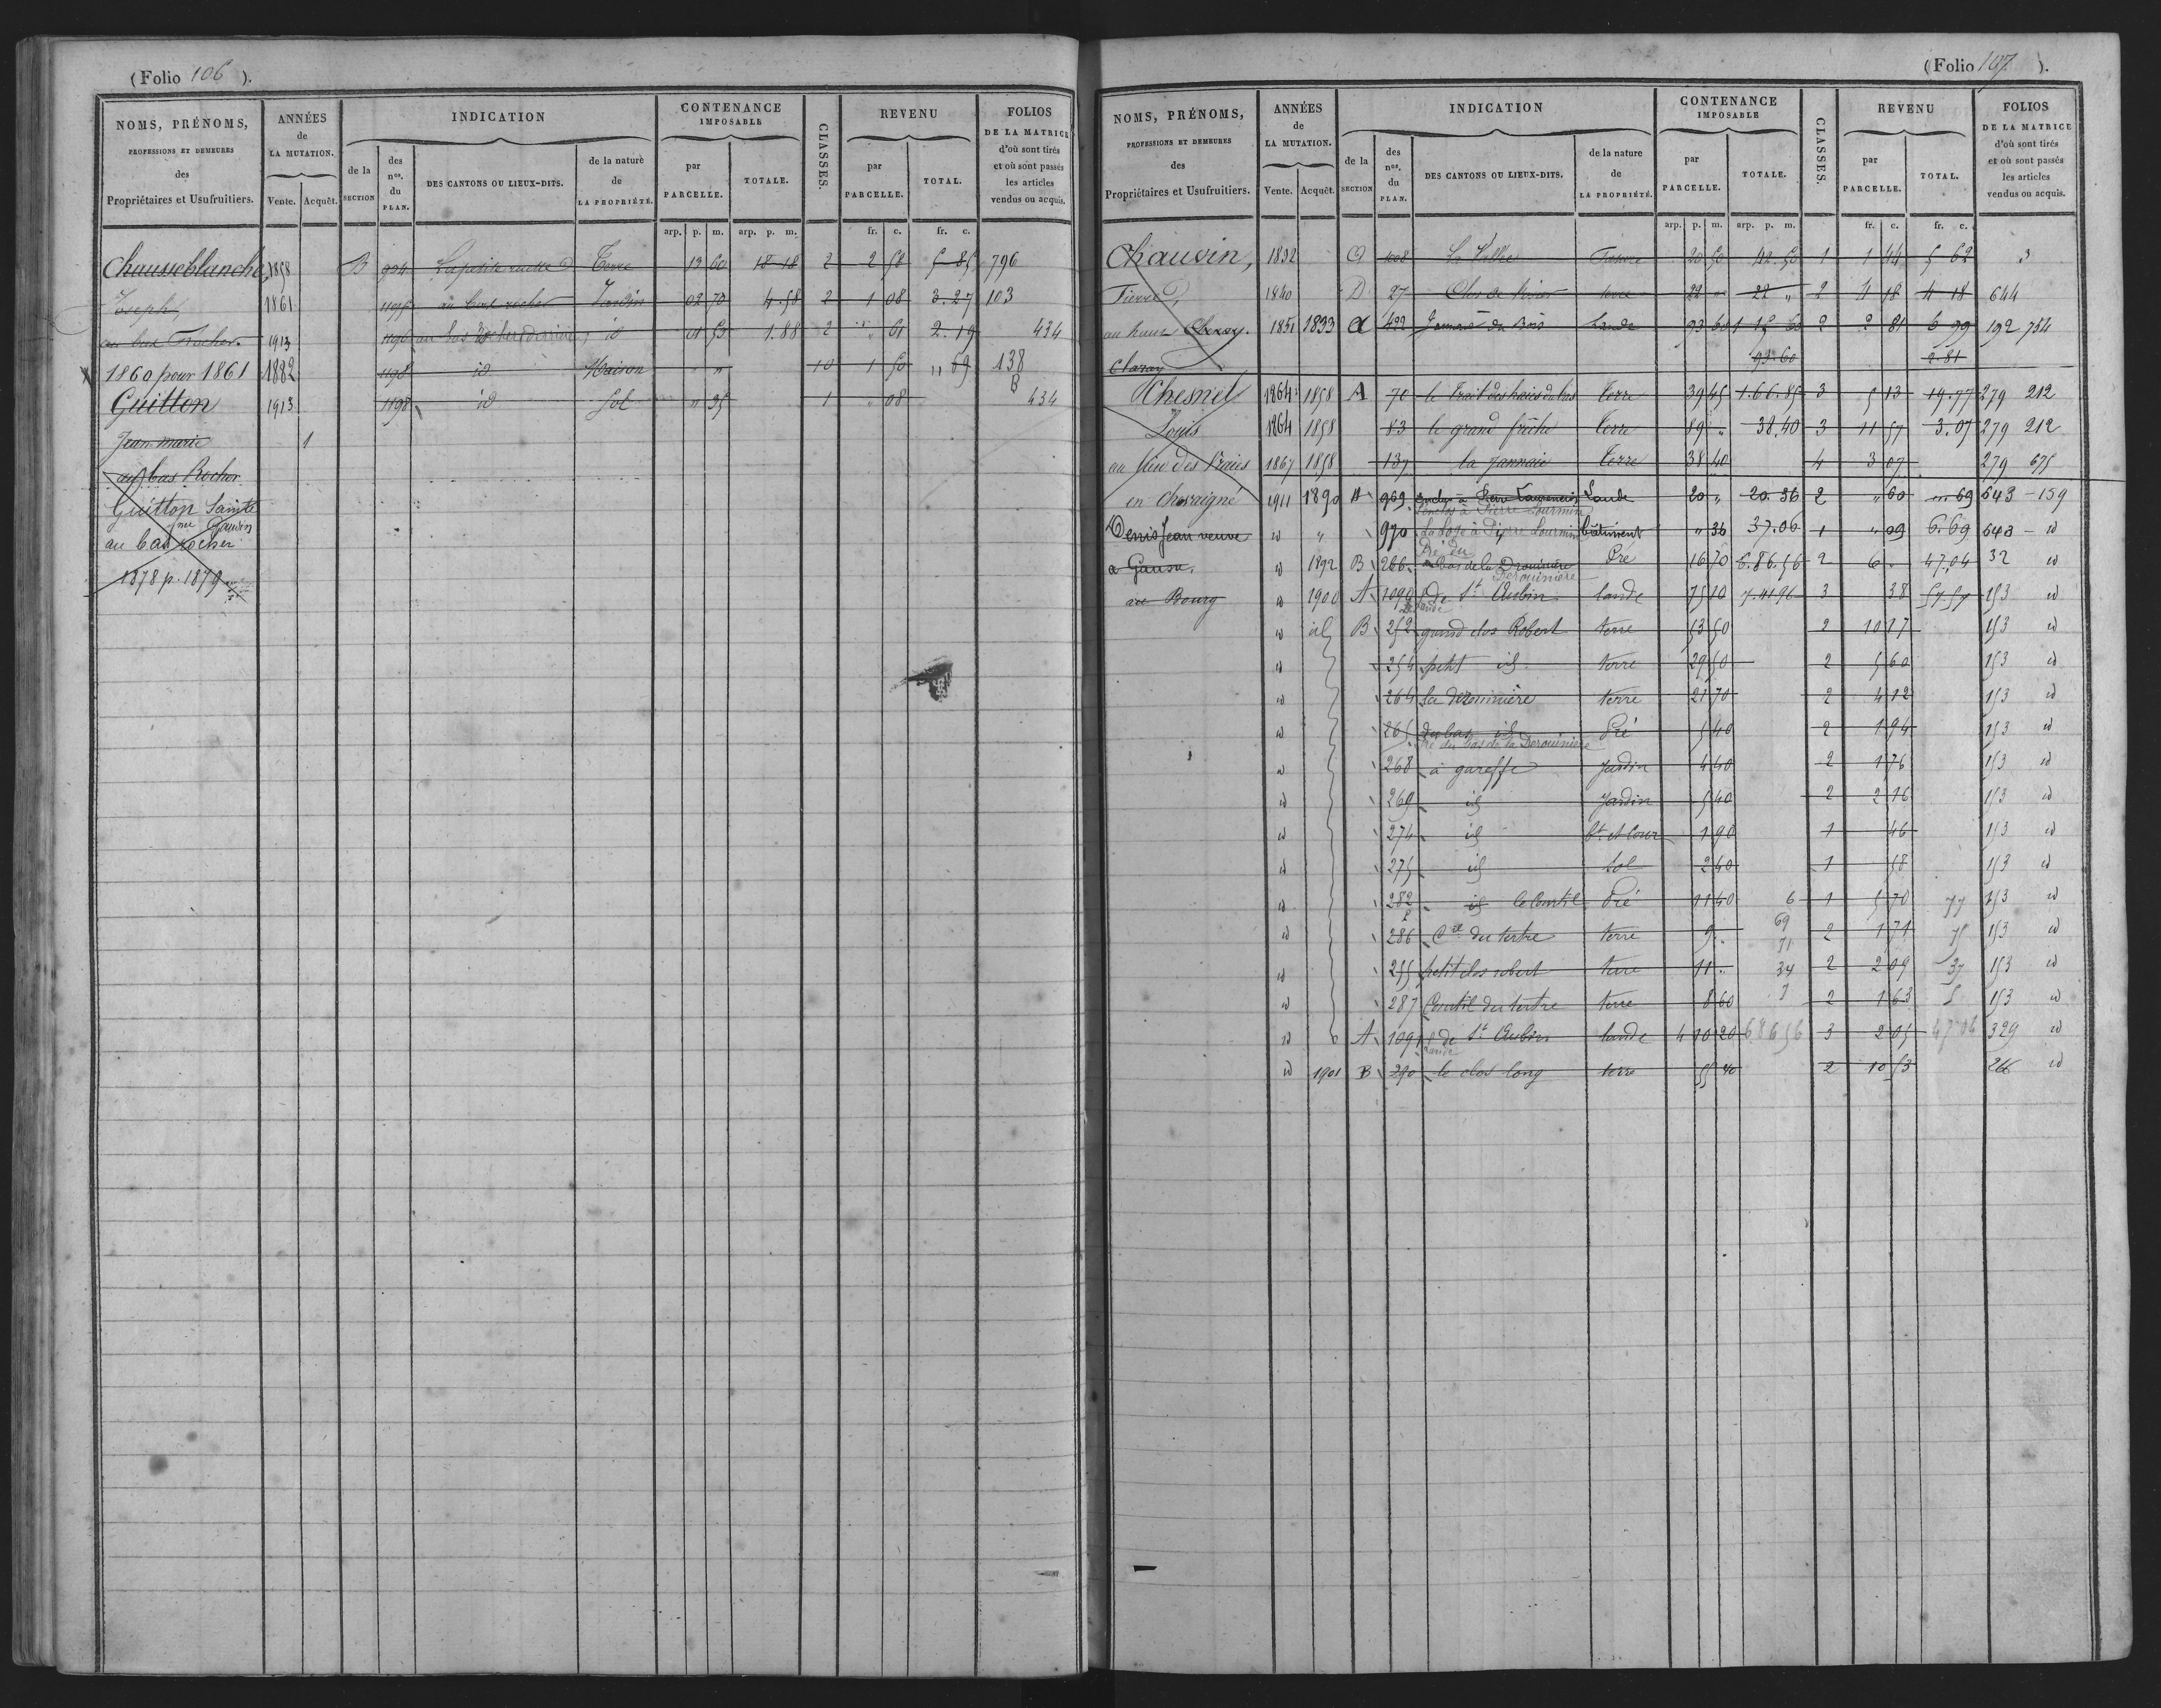 (Folio 106 ).
NOMS, PRÉNOMS, PROFESSIONS ET DEMEURES des Propriétaires et Usufruitiers.
ANNÉES de LA MUTATION. Vente. Acquêt.
INDICATION de la SECTION des nos. du PLAN. DES CANTONS OU LIEUX-DITS. de la nature de LA PROPRIÉTÉ.
CONTENANCE IMPOSABLE par PARCELLE. TOTALE.
CLASSES.
REVENU par PARCELLE. TOTAL.
FOLIOS DE LA MATRICE d'où sont tirés et où sont passés les articles vendus ou acquis.
arp. p. m. arp. p. m. fr. c. fr. c.
Chausseblanche 1858 B 994 La petite ruelle Terre 13 60 18 18 2 2 58 5 85 796
Joseph 1861 1195 au bas rocher Jardin 02 70 4.58 2 1 08 3.27 103
au bas Rocher. 1913 1196 id 01 53 1.88 2 " 61 2.19 434
1860 pour 1861 1882 1198 id Maison " " 10 1 50 " 69 138
B
Guitton 1913 1198 id Sol " 35 1 " 08 434
Jean marie 1
au bas Rocher
Guitton Sainte
née Gauvin
au bas rocher
1878 p. 1879
(Folio 107. ).
NOMS, PRÉNOMS, PROFESSIONS ET DEMEURES des Propriétaires et Usufruitiers.
ANNÉES de LA MUTATION. Vente. Acquêt.
INDICATION de la SECTION des nos. du PLAN. DES CANTONS OU LIEUX-DITS. de la nature de LA PROPRIÉTÉ.
CONTENANCE IMPOSABLE par PARCELLE. TOTALE.
CLASSES.
REVENU par PARCELLE. TOTAL.
FOLIOS DE LA MATRICE d'où sont tirés et où sont passés les articles vendus ou acquis.
arp. p. m. arp. p. m. fr. c. fr. c.
Chauvin, 1832 1008 La Vallée 20 50 42 50 1 1 44 5 62 3
Pierre, 1840 D 27 Clos de terre 22 " 22 " 2 4 18 4 18 644
au haut 1851 1833 a 422 du Bois Lande 93 60 2 2 81 6 99 192 754
Claray 93.60 2.81
Chesnel 1864 1858 A 70 le trait des haies du bas terre 39 45 1.66.85 3 5 13 19.77 279 212
Louis 1864 1858 83 le grand friche terre 89 " 38.40 3 11 57 3.07 279 212
au lieu des Vraies 1867 1858 137 la Jannaie terre 38 40 4 3 07 279 675
en chevaigné 1911 1890 A 969 Lande 20 " 20.36 2 " 60 " 69 643 - 159
l'enclos à Pierre Lourmin
Denis Jean veuve id " 970 La loge à Pierre Lourmin bâtiment " 36 37.06 1 " 09 6.69 643 - id
Pré du
a id 1892 B 266 bas de la Drouinière Pré 16 70 6.86.56 2 6 " 47.04 32 id
Derouinière
au Bourg id 1900 A 1090 de St Aubin lande 75 10 7.41 96 3 38 57.57 153 id
lande
id id B 252 grand clos Robert terre 53 50 2 10 17 153 id
id 254 petit id terre 29 50 2 5 60 153 id
id 264 La Derouinière terre 21 70 2 4 12 153 id
id 265 du bas id Pré 5 40 2 1 94 153 id
Pré du bas de la Derouinière
id 268 à gareffe Jardin 4 40 2 1 76 153 id
id 269 id Jardin 5 40 2 2 16 153 id
id 274 id bt et Cour 1 90 1 46 153 id
id 275 id sol 2 40 1 58 153 id
id 282 id le Courtil Pré 11 40 6 1 5 70 77 153 id
id 286 Ctil du tertre terre 9 " 69 71 2 1 71 75 153 id
id 255 petit clos robert terre 11 " 34 2 2 09 37 153 id
id 287 Courtil du tertre terre 8 60 7 2 1 63 5 153 id
id A 1091 de St Aubin lande 4 10 20 6 86 56 3 2 05 47 06 329 id
lande
id 1901 B 290 le clos long terre 55 40 2 10 53 266 id